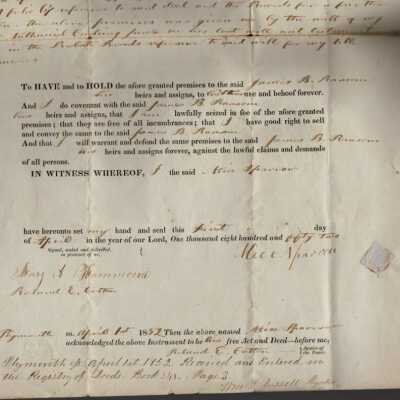 folio 65 reference to said deed and the Records for a further
the above premises was given me by the will of my
Nathaniel Cushing
in the Probate Records reference to said will for my title
To HAVE and to HOLD the afore granted premises to the said James B. Ransom
his heirs and assigns, to his use and behoof forever.
And I do covenant with the said James B. Ransom
his heirs and assigns, that I am lawfully seized in fee of the afore granted
premises; that they are free of all incumbrances; that I have good right to sell
and convey the same to the said James B. Ransom
And that I will warrant and defend the same premises to the said James B. Ransom
his heirs and assigns forever, against the lawful claims and demands
of all persons.
IN WITNESS WHEREOF, I the said
have hereunto set my hand and seal this first day
of April in the year of our Lord, One thousand eight hundred and fifty two
Signed, sealed and delivered
in presence of us,
Mary A. Hammond
Roland E. Cotton
Plymouth ss. April 1st 1852 Then the above named
acknowledged the above Instrument to be his free Act and Deed—before me,
Roland E. Cotton Justice of the Peace.
Plymouth ss. April 1st 1852. Received and Entered in
the Registry of Deeds Book Page 3
Wm S. Russell Register